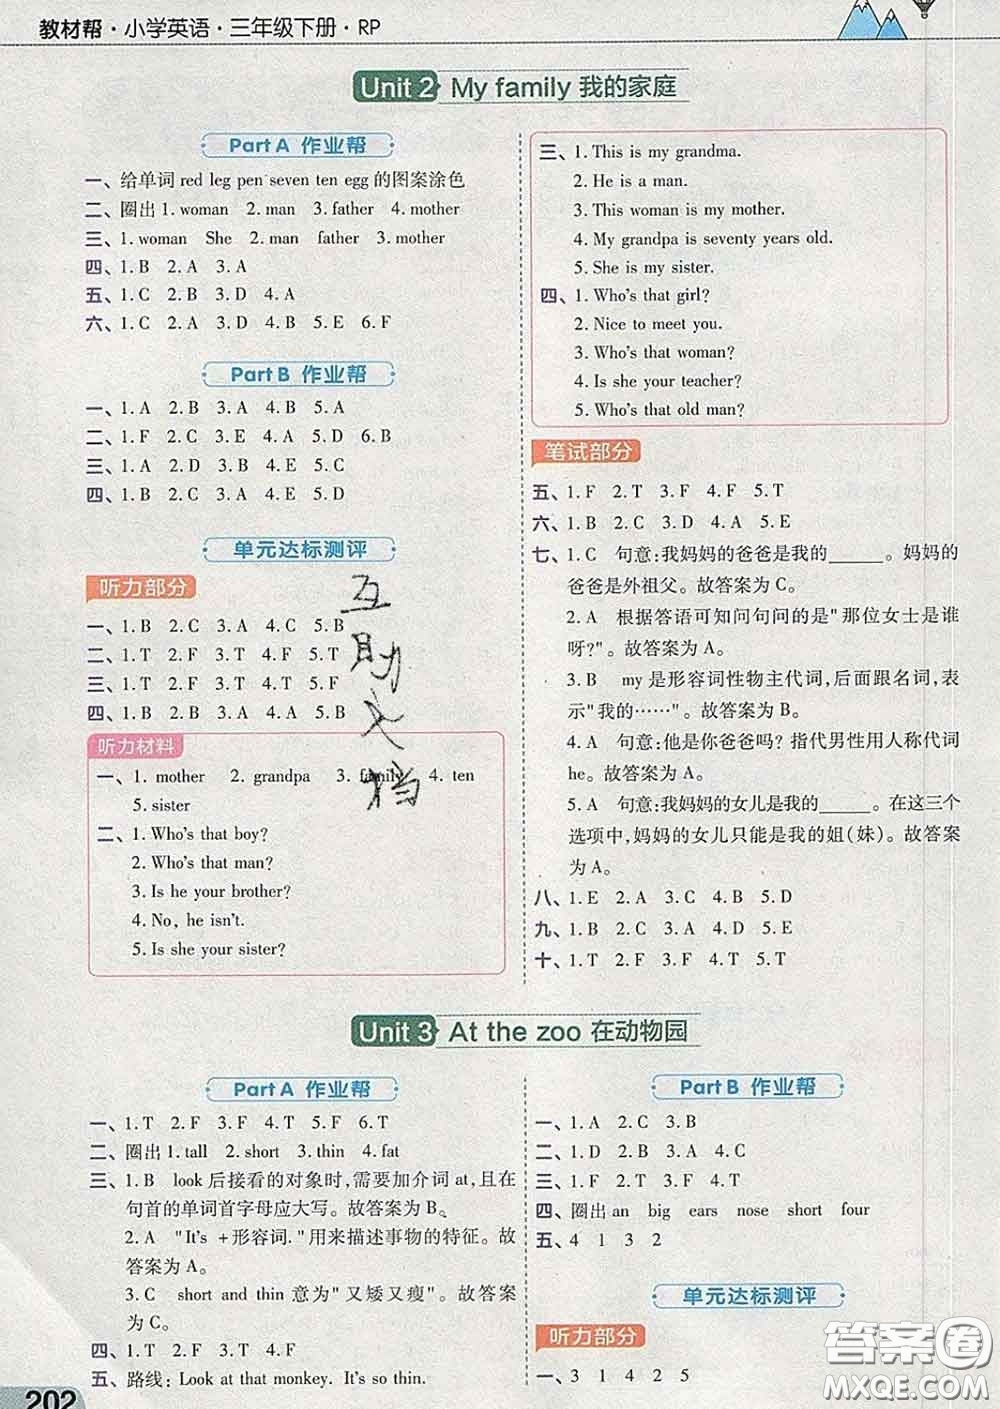 教材帮·小学英语·三年级下册·RP
Unit 2 My family 我的家庭
Part A 作业帮
一、给单词 red leg pen seven ten egg 的图案涂色
二、圈出 1. woman 2. man 3. father 4. mother
三、1. woman She 2. man father 3. mother
四、1. B 2. A 3. A
五、1. C 2. B 3. D 4. A
六、1. C 2. A 3. D 4. B 5. E 6. F
Part B 作业帮
一、1. A 2. B 3. A 4. B 5. A
二、1. F 2. C 3. E 4. A 5. D 6. B
三、1. A 2. D 3. B 4. E 5. C
四、1. B 2. C 3. A 4. E 5. D
单元达标测评
听力部分
一、1. B 2. C 3. A 4. C 5. B
二、1. T 2. F 3. T 4. F 5. T
三、1. T 2. F 3. T 4. T 5. F
四、1. B 2. B 3. A 4. A 5. B
听力材料
一、1. mother 2. grandpa 3. family 4. ten
5. sister
二、1. Who's that boy?
2. Who's that man?
3. Is he your brother?
4. No, he isn't.
5. Is she your sister?
互
助
文
档
三、1. This is my grandma.
2. He is a man.
3. This woman is my mother.
4. My grandpa is seventy years old.
5. She is my sister.
四、1. Who's that girl?
2. Nice to meet you.
3. Who's that woman?
4. Is she your teacher?
5. Who's that old man?
笔试部分
五、1. F 2. T 3. F 4. F 5. T
六、1. B 2. C 3. D 4. A 5. E
七、1. C 句意:我妈妈的爸爸是我的_____。妈妈的
爸爸是外祖父。故答案为 C。
2. A 根据答语可知问句问的是"那位女士是谁
呀?"。故答案为 A。
3. B my 是形容词性物主代词,后面跟名词,表
示"我的……"。故答案为 B。
4. A 句意:他是你爸爸吗?指代男性用人称代词
he。故答案为 A。
5. A 句意:我妈妈的女儿是我的_____。在这三个
选项中,妈妈的女儿只能是我的姐(妹)。故答案
为 A。
八、1. E 2. A 3. C 4. B 5. D
九、1. B 2. C 3. A 4. D 5. E
十、1. T 2. F 3. F 4. T 5. T
Unit 3 At the zoo 在动物园
Part A 作业帮
一、1. T 2. F 3. F 4. T 5. F 6. T
二、圈出 1. tall 2. short 3. thin 4. fat
三、1. B look 后接看的对象时,需要加介词 at,且在
句首的单词首字母应大写。故答案为 B。
2. A "It's +形容词."用来描述事物的特征。故
答案为 A。
3. C short and thin 意为"又矮又瘦"。故答案
为 C。
四、1. T 2. F 3. F 4. T
五、路线:Look at that monkey. It's so thin.
Part B 作业帮
一、1. A 2. C 3. B
二、1. D 2. B 3. A 4. C
三、1. F 2. T 3. F 4. T
四、圈出 an big ears nose short four
五、4 1 3 2
单元达标测评
听力部分
一、3 1 4 2 5
202
答案圈
MXQE.COM